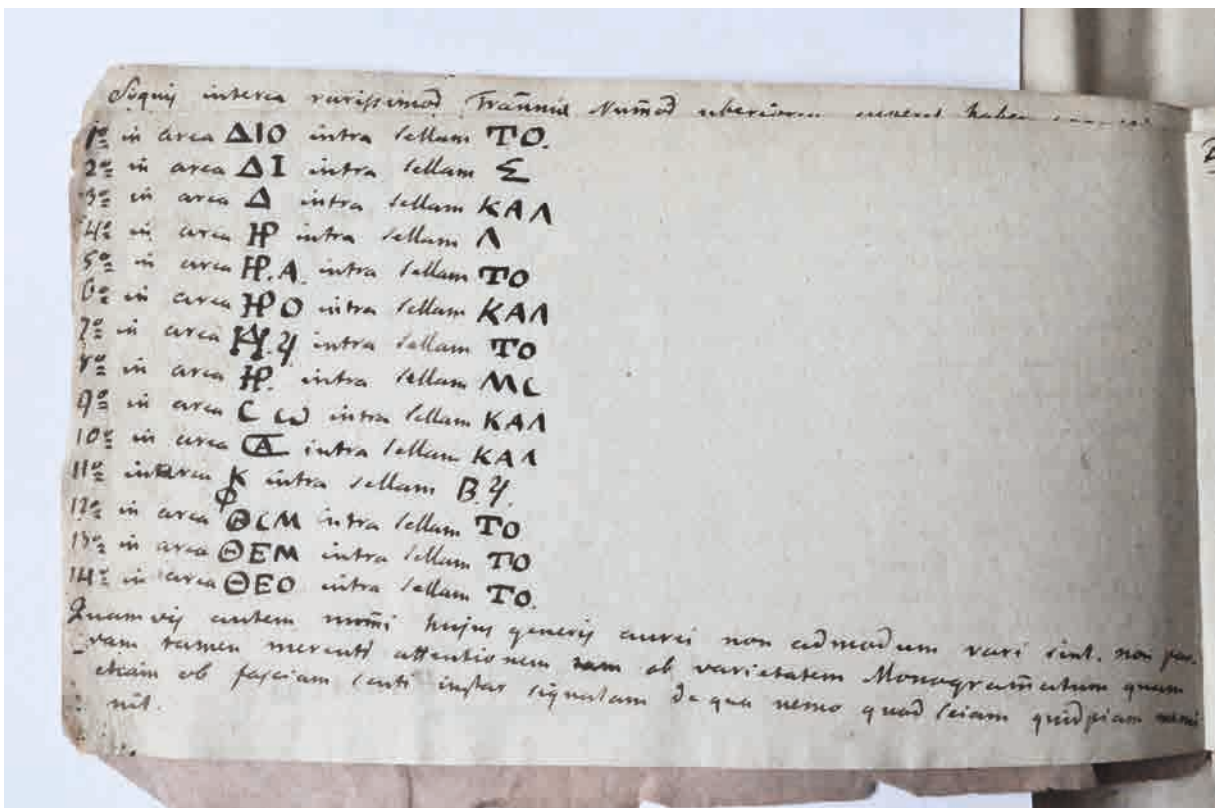 Siquis interea rarissimos Tyannid Numos uberiorem
1º in area ΔΙΟ intra sellam ΤΟ.
2º in area ΔΙ intra sellam Σ
3º in area Δ intra sellam ΚΑΛ
4º in area ΗΡ intra sellam Λ
5º in area ΗΡ.Α. intra sellam ΤΟ
6º in area ΗΡ Ο intra sellam ΚΑΛ
7º in area intra sellam ΤΟ
8º in area ΗΡ. intra sellam ΜC
9º in area C ω intra sellam ΚΑΛ
10º in area intra sellam ΚΑΛ
11º in area intra sellam Β
12º in area ΘCΜ intra sellam ΤΟ
13º in area ΘΕΜ intra sellam ΤΟ
14º in area ΘΕΟ intra sellam ΤΟ.
Quamvis autem num̄i hujus generis aurei non admodum rari sint. non par-
vam tamen merenti attentionem tam ob varietatem Monogram̄atum quam
etiam ob fasciam scuti instar signatam de qua nemo quod sciam quidpiam memi-
nit.